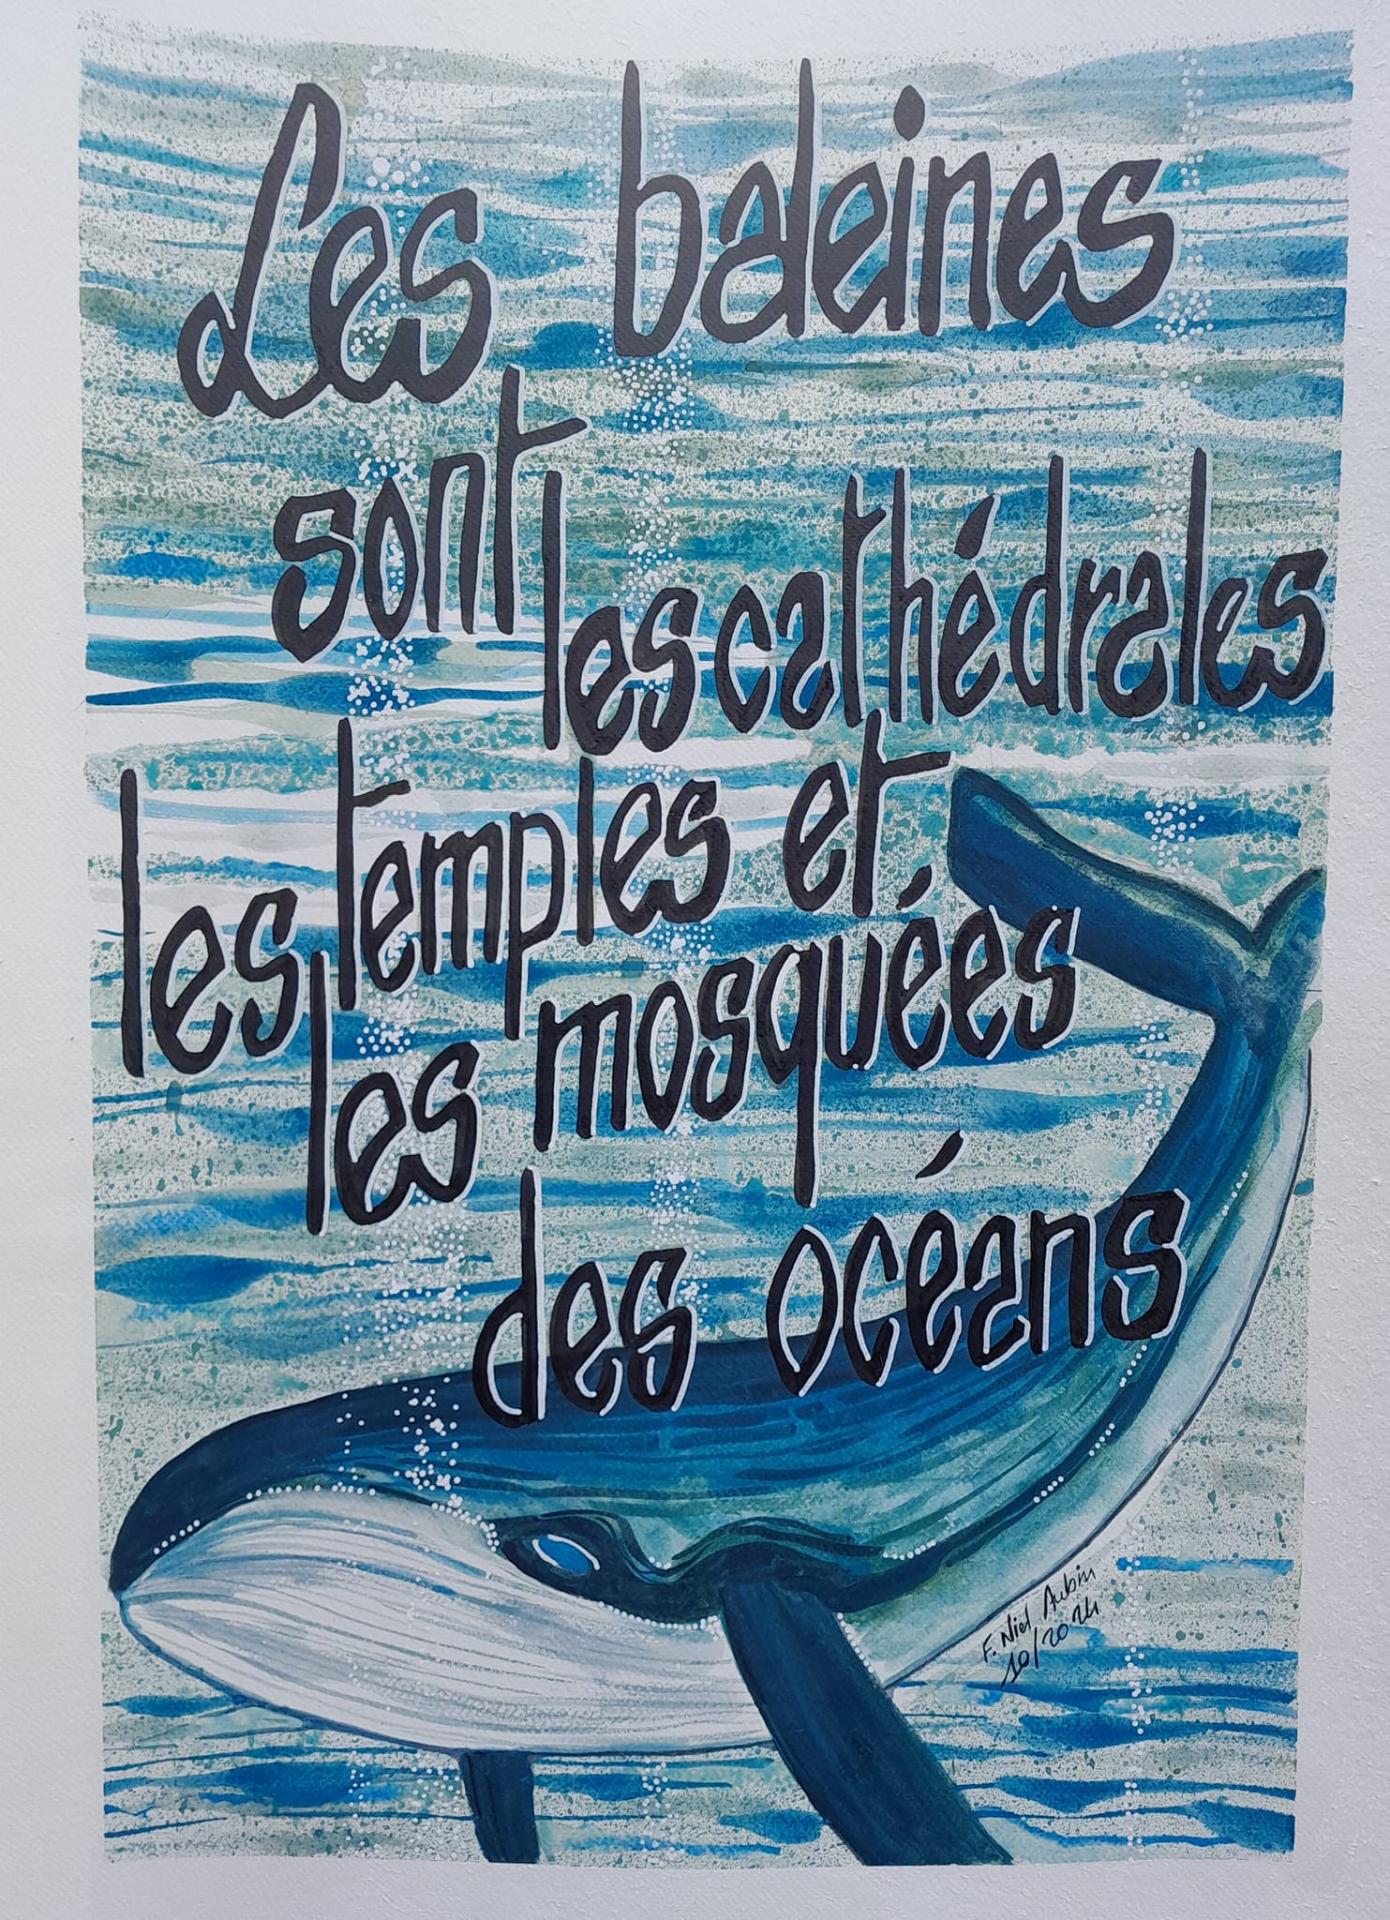 Les baleines
sont
les cathédrales
les temples et
les mosquées
des océans
F. Niel Aubin
10/2024